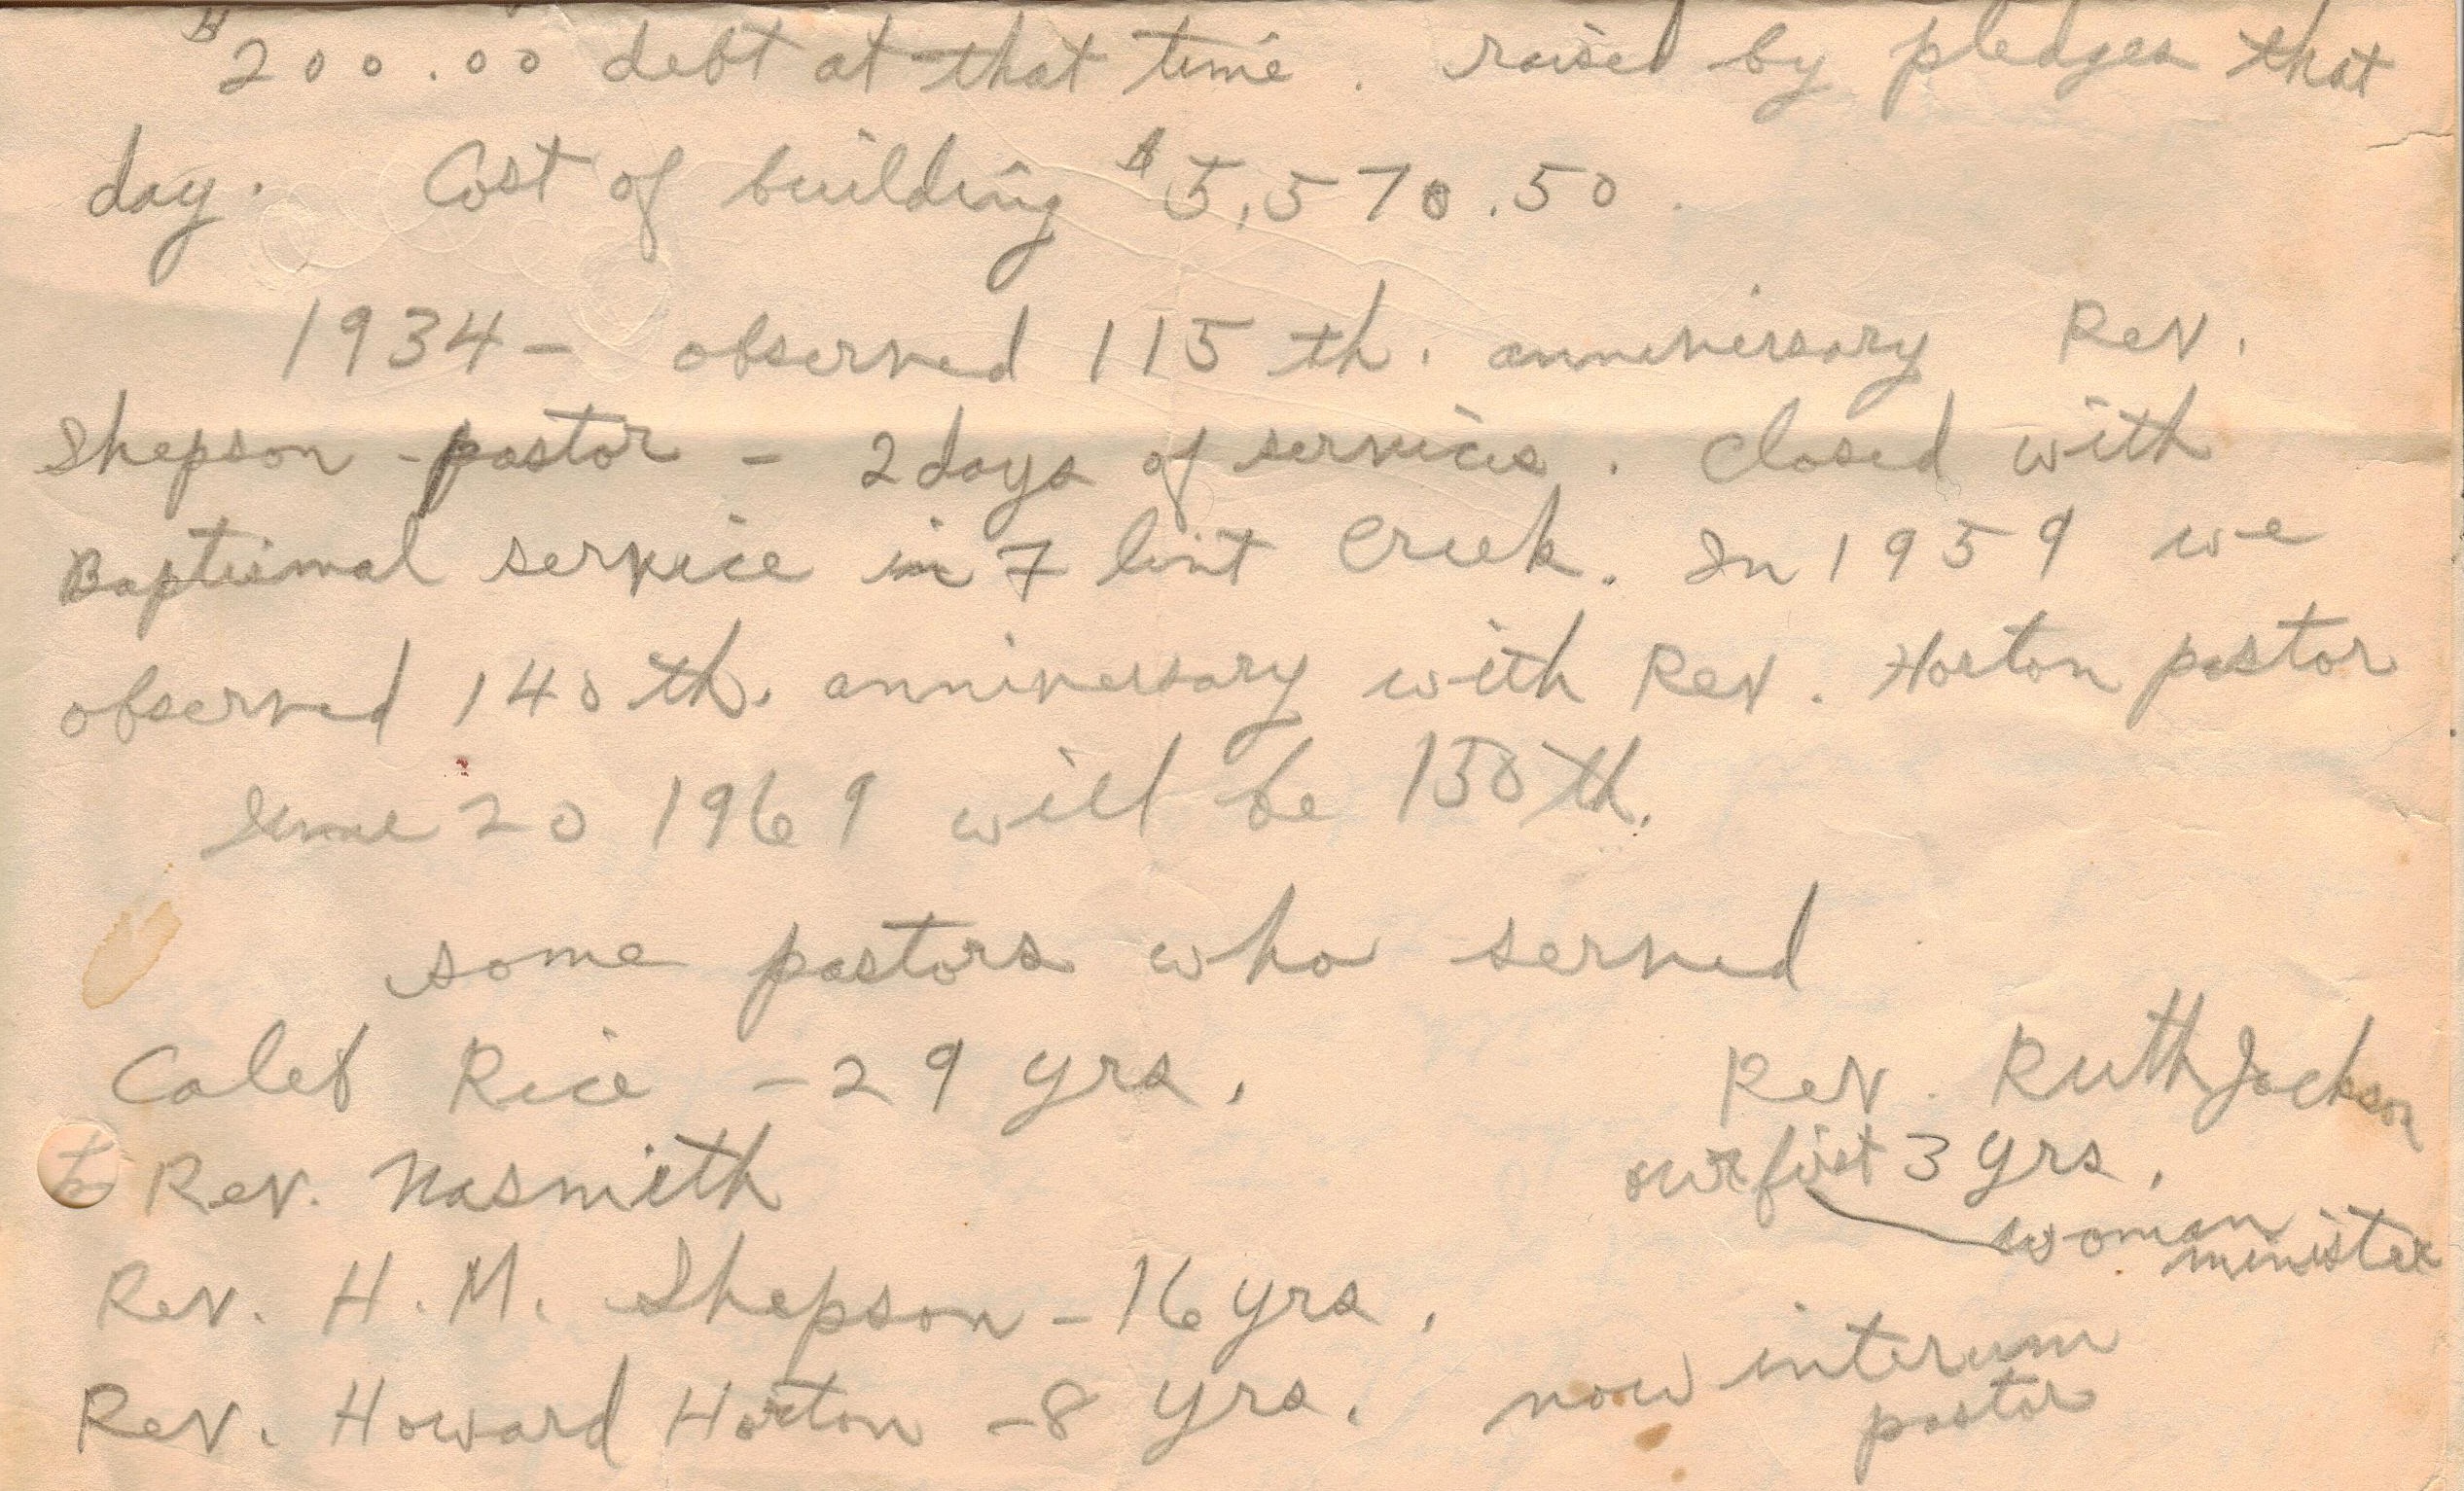 $200.00 debt at that time. raised by pledges that
day. Cost of building $5,570.50.
1934 - observed 115th. anniversary Rev.
Shepson - pastor - 2 days of services. Closed with
Baptismal service in Flint Creek. In 1959 we
observed 140th. anniversary with Rev. Horton pastor
June 20 1969 will be 150th.
some pastors who served
Caleb Rice - 29 yrs.
Rev. Ruth Jackson
our first 3 yrs.
woman
minister
Rev. Nasmith
Rev. H. M. Shepson - 16 yrs.
Rev. Howard Horton - 8 yrs. now interum
pastor